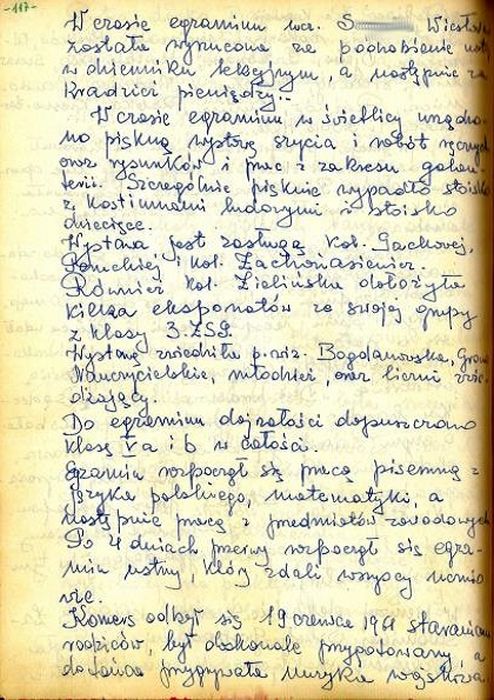 -117-
W czasie egzaminu ucz. S Wiesława
została wyrzucona za podrobienie not
w dzienniku lekcyjnym, a następnie za
kradzież pieniędzy.
W czasie egzaminu w świetlicy urządzo-
no piękną wystawę szycia i robót ręcznych
oraz rysunków i prac z zakresu galan-
terii. Szczególnie pięknie wypadło stoisko
z kostiumami ludowymi i stoisko
dziecięce.
Wystawa jest zasługą kol. Gackowej,
i kol.
Również kol. Zielińska dołożyła
kilka eksponatów ze swojej grupy
z klasy 3. ZSG
Wystawę zwiedziła p. wiz. Bogdanowska, Grono
Nauczycielskie, młodzież, oraz liczni zwie-
dzający.
Do egzaminu dojrzałości dopuszczono
klasę V a i b w całości.
Egzamin rozpoczął się pracą pisemną z
języka polskiego, matematyki, a
następnie pracą z przedmiotów zawodowych
Po 4 dniach przerwy rozpoczął się egza-
min ustny, który zdali wszyscy ucznio
wie.
Komers odbył się 19 czerwca 1961 staraniem
rodziców, był doskonale przygotowany, a
do tańca przygrywała muzyka wojskowa.